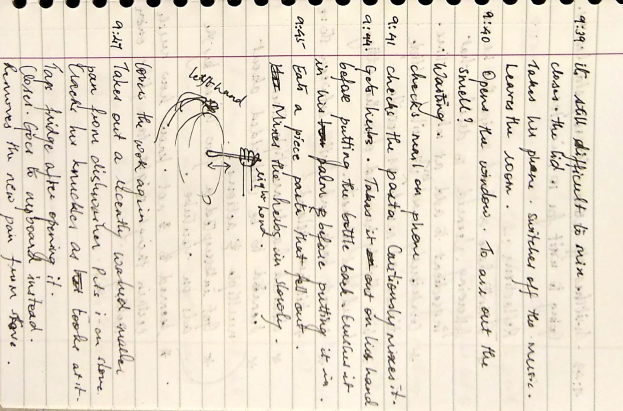 9:39 it still difficult to mix.
closes the lid.
Takes his phone. Switches off the music.
Leaves the room.
9:40 Opens the window. To air out the
smell?
Waiting.
checks mail on phone.
9:41 checks the pasta. Cautiously mixes it.
9:44 Gets herbs. Takes it out on his hand
before putting the bottle back. Smells it
in his palm before putting it in.
9:45 Eats a piece pasta that fell out.
Mixes the herbs in slowly.
right hand.
left hand
the wok again
9:47 Takes out a recently washed smaller
pan from dishwasher. Puts it on stove
Cracks his knuckles as looks at it.
fridge after opening it.
Closes. Goes to cupboard instead.
Removes the new pan from stove.